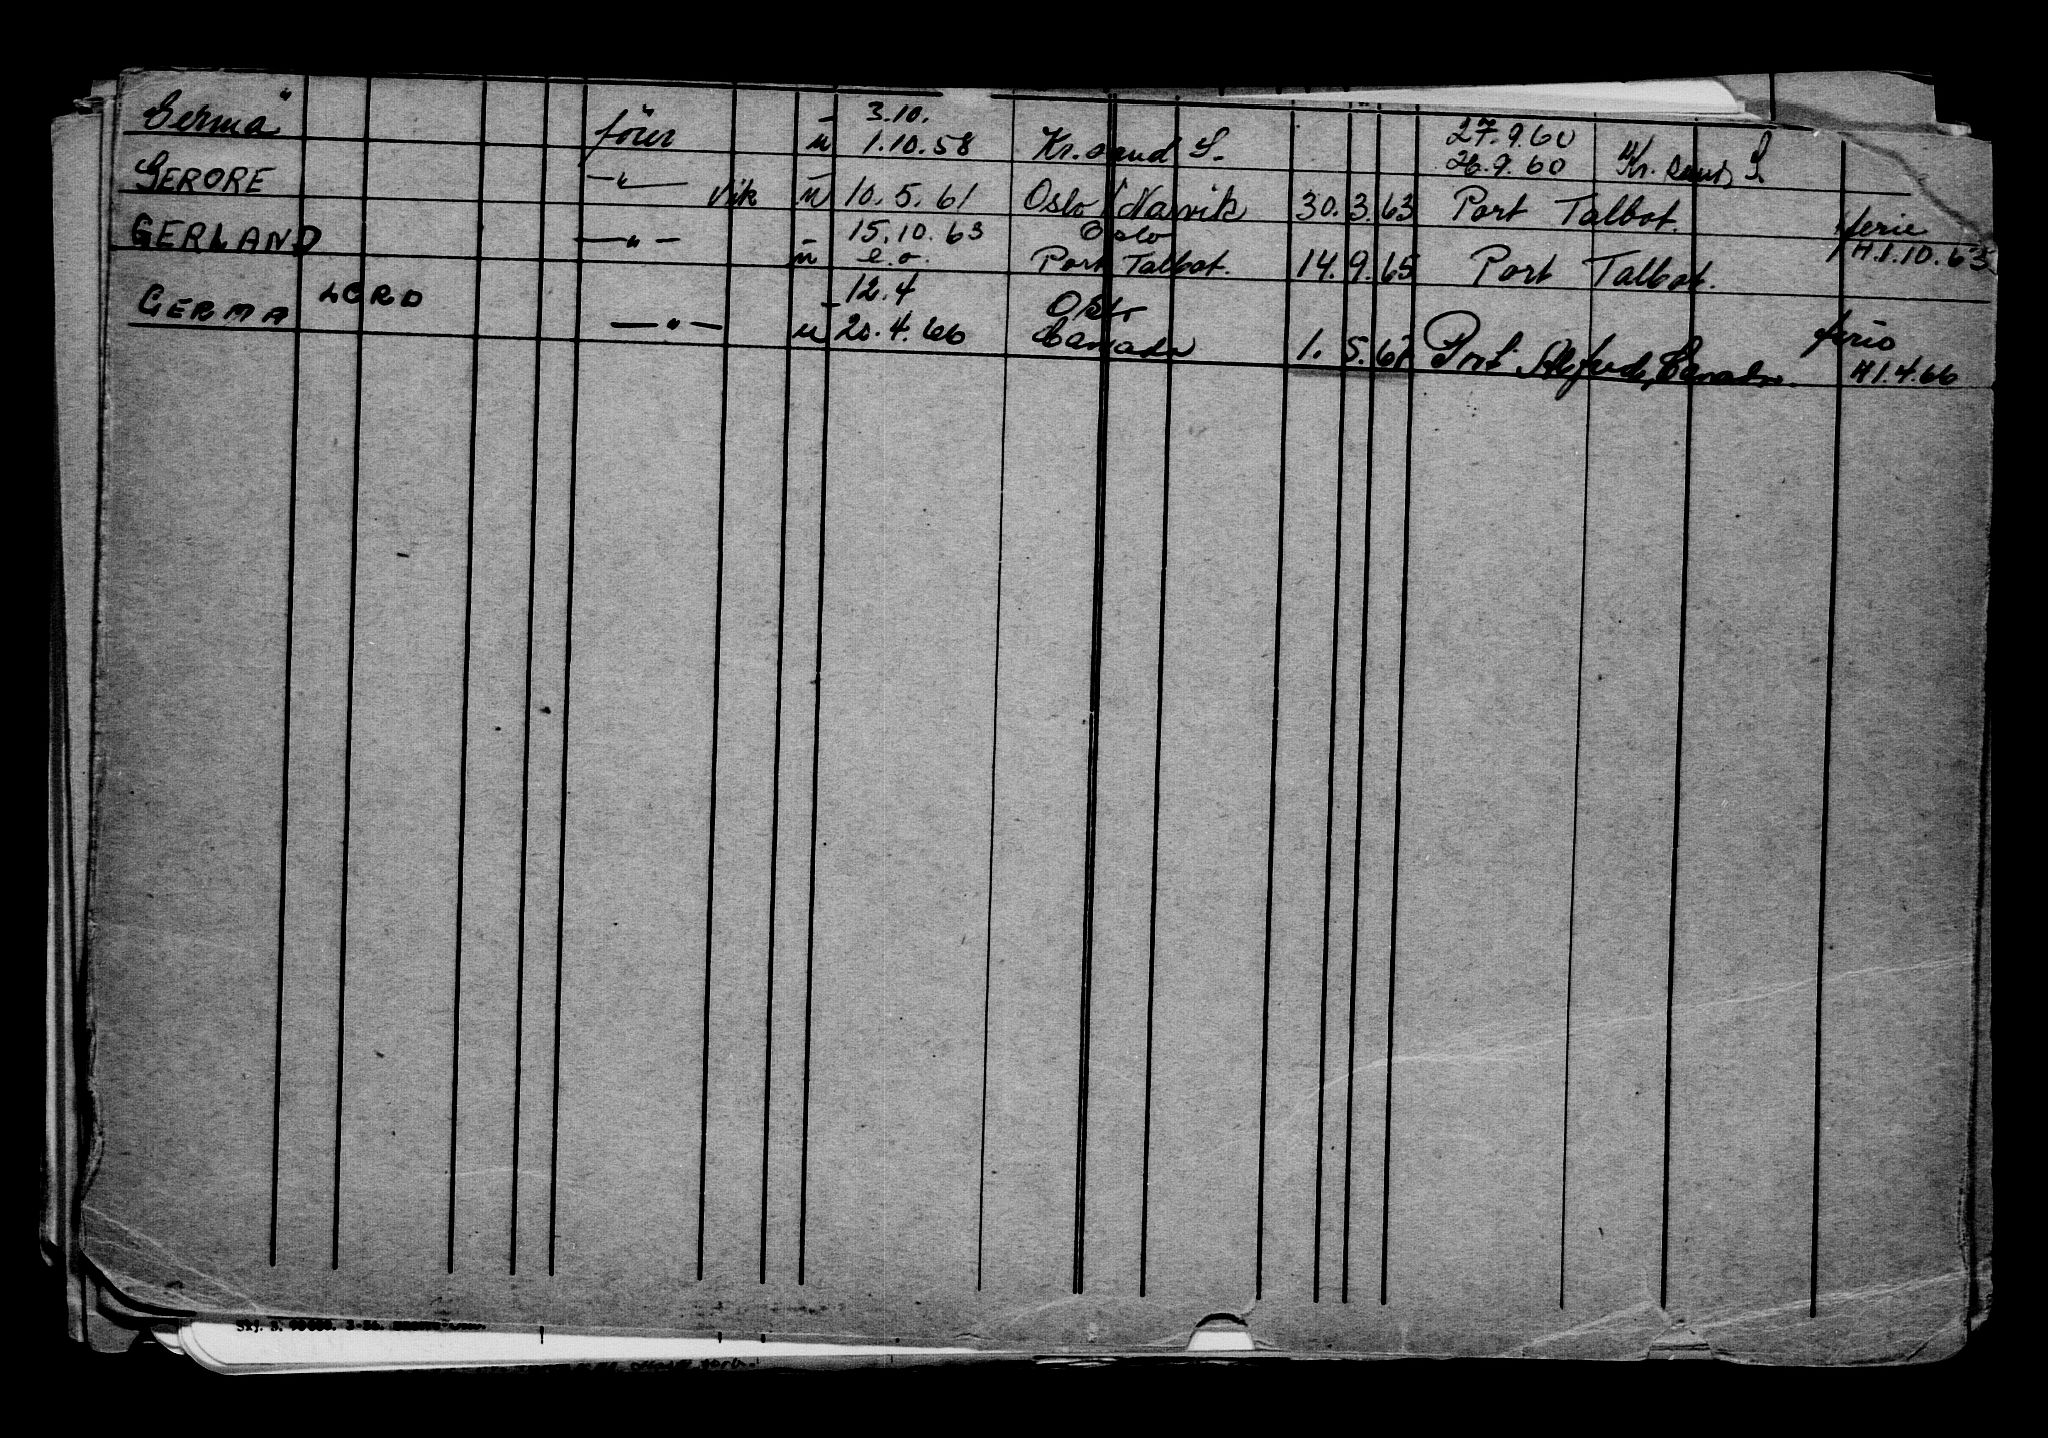 "Germa" förer - 3.10. 27.9.60
u 1.10.58 Kr.sand S. 26.9.60 Kr. sand S.
GERORE — " — Vik u 10.5.61 Oslo / Narvik 30. 3. 63 Port Talbot. ferie
GERLAND — " — - 15.10.63 Oslo H.1.10.63
u e.o. Port Talbot. 14. 9. 65 Port Talbot.
GERMA LORD — " — - 12.4 Oslo ferie
u 20.4.66 Canada 1. 5. 67 Port Alfred, Canada. H 1.4.66